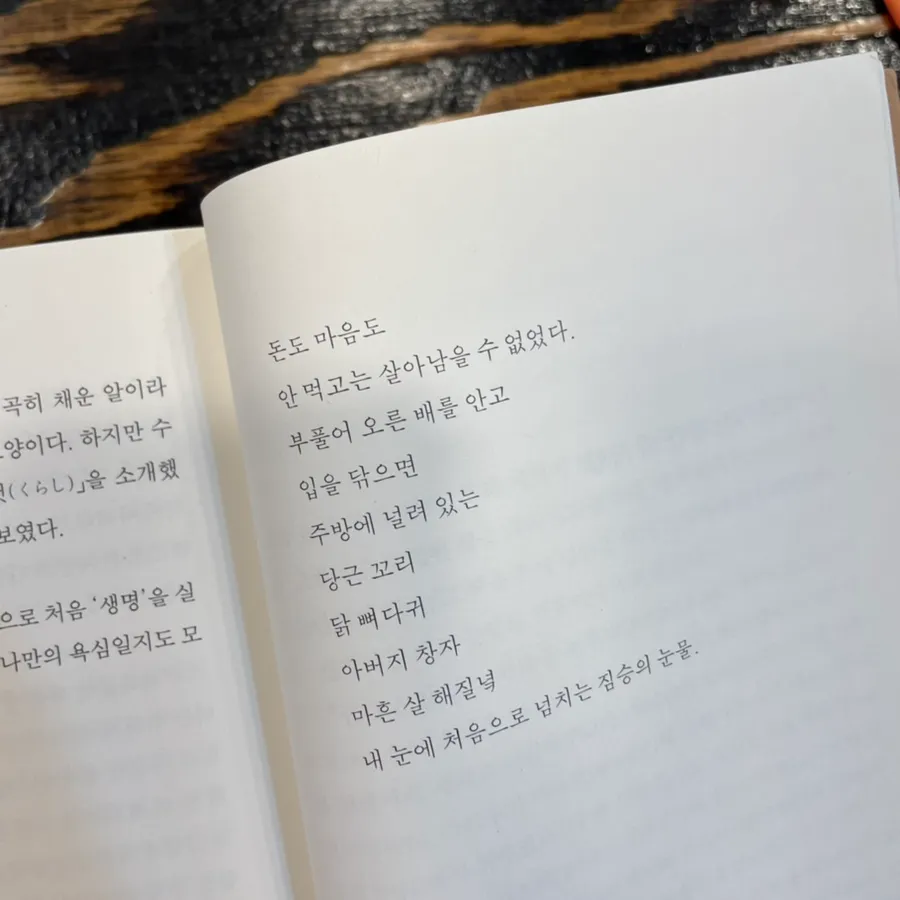 곡히 채운 알이라
양이다. 하지만 수
(くらし)」을 소개했
보였다.
으로 처음 ‘생명’을 실
나만의 욕심일지도 모
돈도 마음도
안 먹고는 살아남을 수 없었다.
부풀어 오른 배를 안고
입을 닦으면
주방에 널려 있는
당근 꼬리
닭 뼈다귀
아버지 창자
마흔 살 해질녘
내 눈에 처음으로 넘치는 짐승의 눈물.